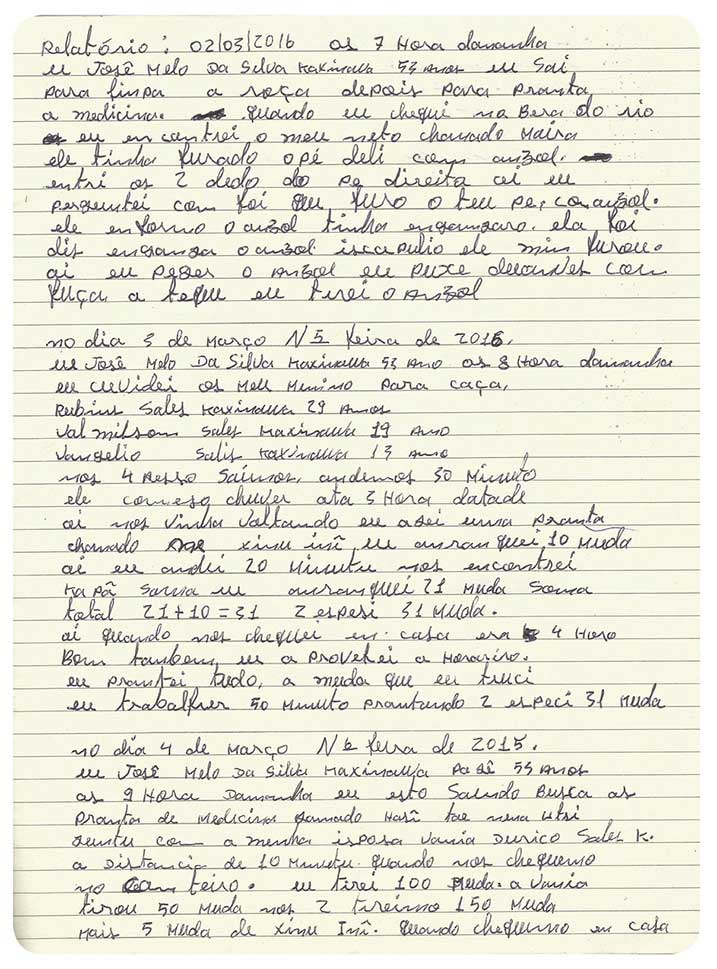 Relatório: 02/03/2016 as 7 Hora damanha
eu José Melo Da Silva Kaxinawa 53 anos eu sai
para linpa a roça depois para pranta
a medicina. quando eu chequi na Bera do rio
eu en cantrei o meu neto chamado Maira
ele tinha furado opé deli com anzol.
entri os 2 dedo do pe direita ai eu
perguntei com foi que furo o teu pe, con anzol.
ele enformo o anzol tinha enganzaro. ela foi
dis enganza o anzol iscapulio ele min furou.
ai eu peger o anzol eu puxe devander con
fuça a teque eu tirei o anzol
no dia 3 de Março N 5 feira de 2015.
eu José Melo Da Silva Kaxinawa 53 Ano as 8 Hora damanha
eu cuvidei os Meu Menino para caça.
Rubins Sales Kaxinawa 29 Anos
Valmilsom Sales Kaxinawa 19 Ano
Vangelio Salis Kaxinawa 13 Ano
nos 4 Pesso Saimos, andemos 30 Minuto
ele começo chuver ata 3 Hora datade
ai nos vinha valtando eu asei uma pranta
chamado xinu inĩ eu anranquei 10 Muda
ai eu andei 20 Minutu nos encontrei
Kapã Sauna eu anranquei 21 Muda Soma
total 21+10=31 2 espesi 31 Muda.
ai quando nos chequei en casa era 4 Hora
Bom tanbem, eu a provetei a Horariro.
eu prantei tudo, a muda que eu truci
eu trabalher 50 Minuto prantando 2 especi 31 Muda
no dia 4 de Março N 6 feira de 2015.
eu José Melo Da Silva Kaxinawa Pajé 53 Anos
as 9 Hora Damanha eu esto Saindo Busca as
pranta de Medicina Hasĩ tae
juntu com a menha isposa Vania Durico Sales K.
a Distancia de 10 Minutu. quando nos chequemo
no can teiro. eu tirei 100 Muda. a Vania
tirou 50 Muda nos 2 tireimo 150 Muda
Mais 5 Muda de xinu Inĩ. quando chequemo en casa